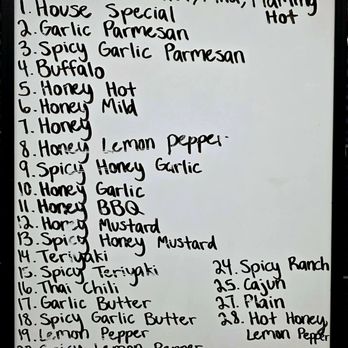 Flaming
1. House Special Hot
2. Garlic Parmesan
3. Spicy Garlic Parmesan
4. Buffalo
5. Honey Hot
6. Honey Mild
7. Honey
8. Honey Lemon pepper
9. Spicy Honey Garlic
10. Honey Garlic
11. Honey BBQ
12. Honey Mustard
13. Spicy Honey Mustard
14. Teriyaki
15. Spicy Teriyaki
16. Thai Chili
17. Garlic Butter
18. Spicy Garlic Butter
19. Lemon Pepper
Spicy Lemon Pepper
24. Spicy Ranch
25. Cajun
27. Plain
28. Hot Honey
Lemon Pepper